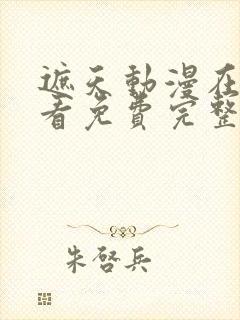 遮天動漫在
看免費完整
朱啓兵